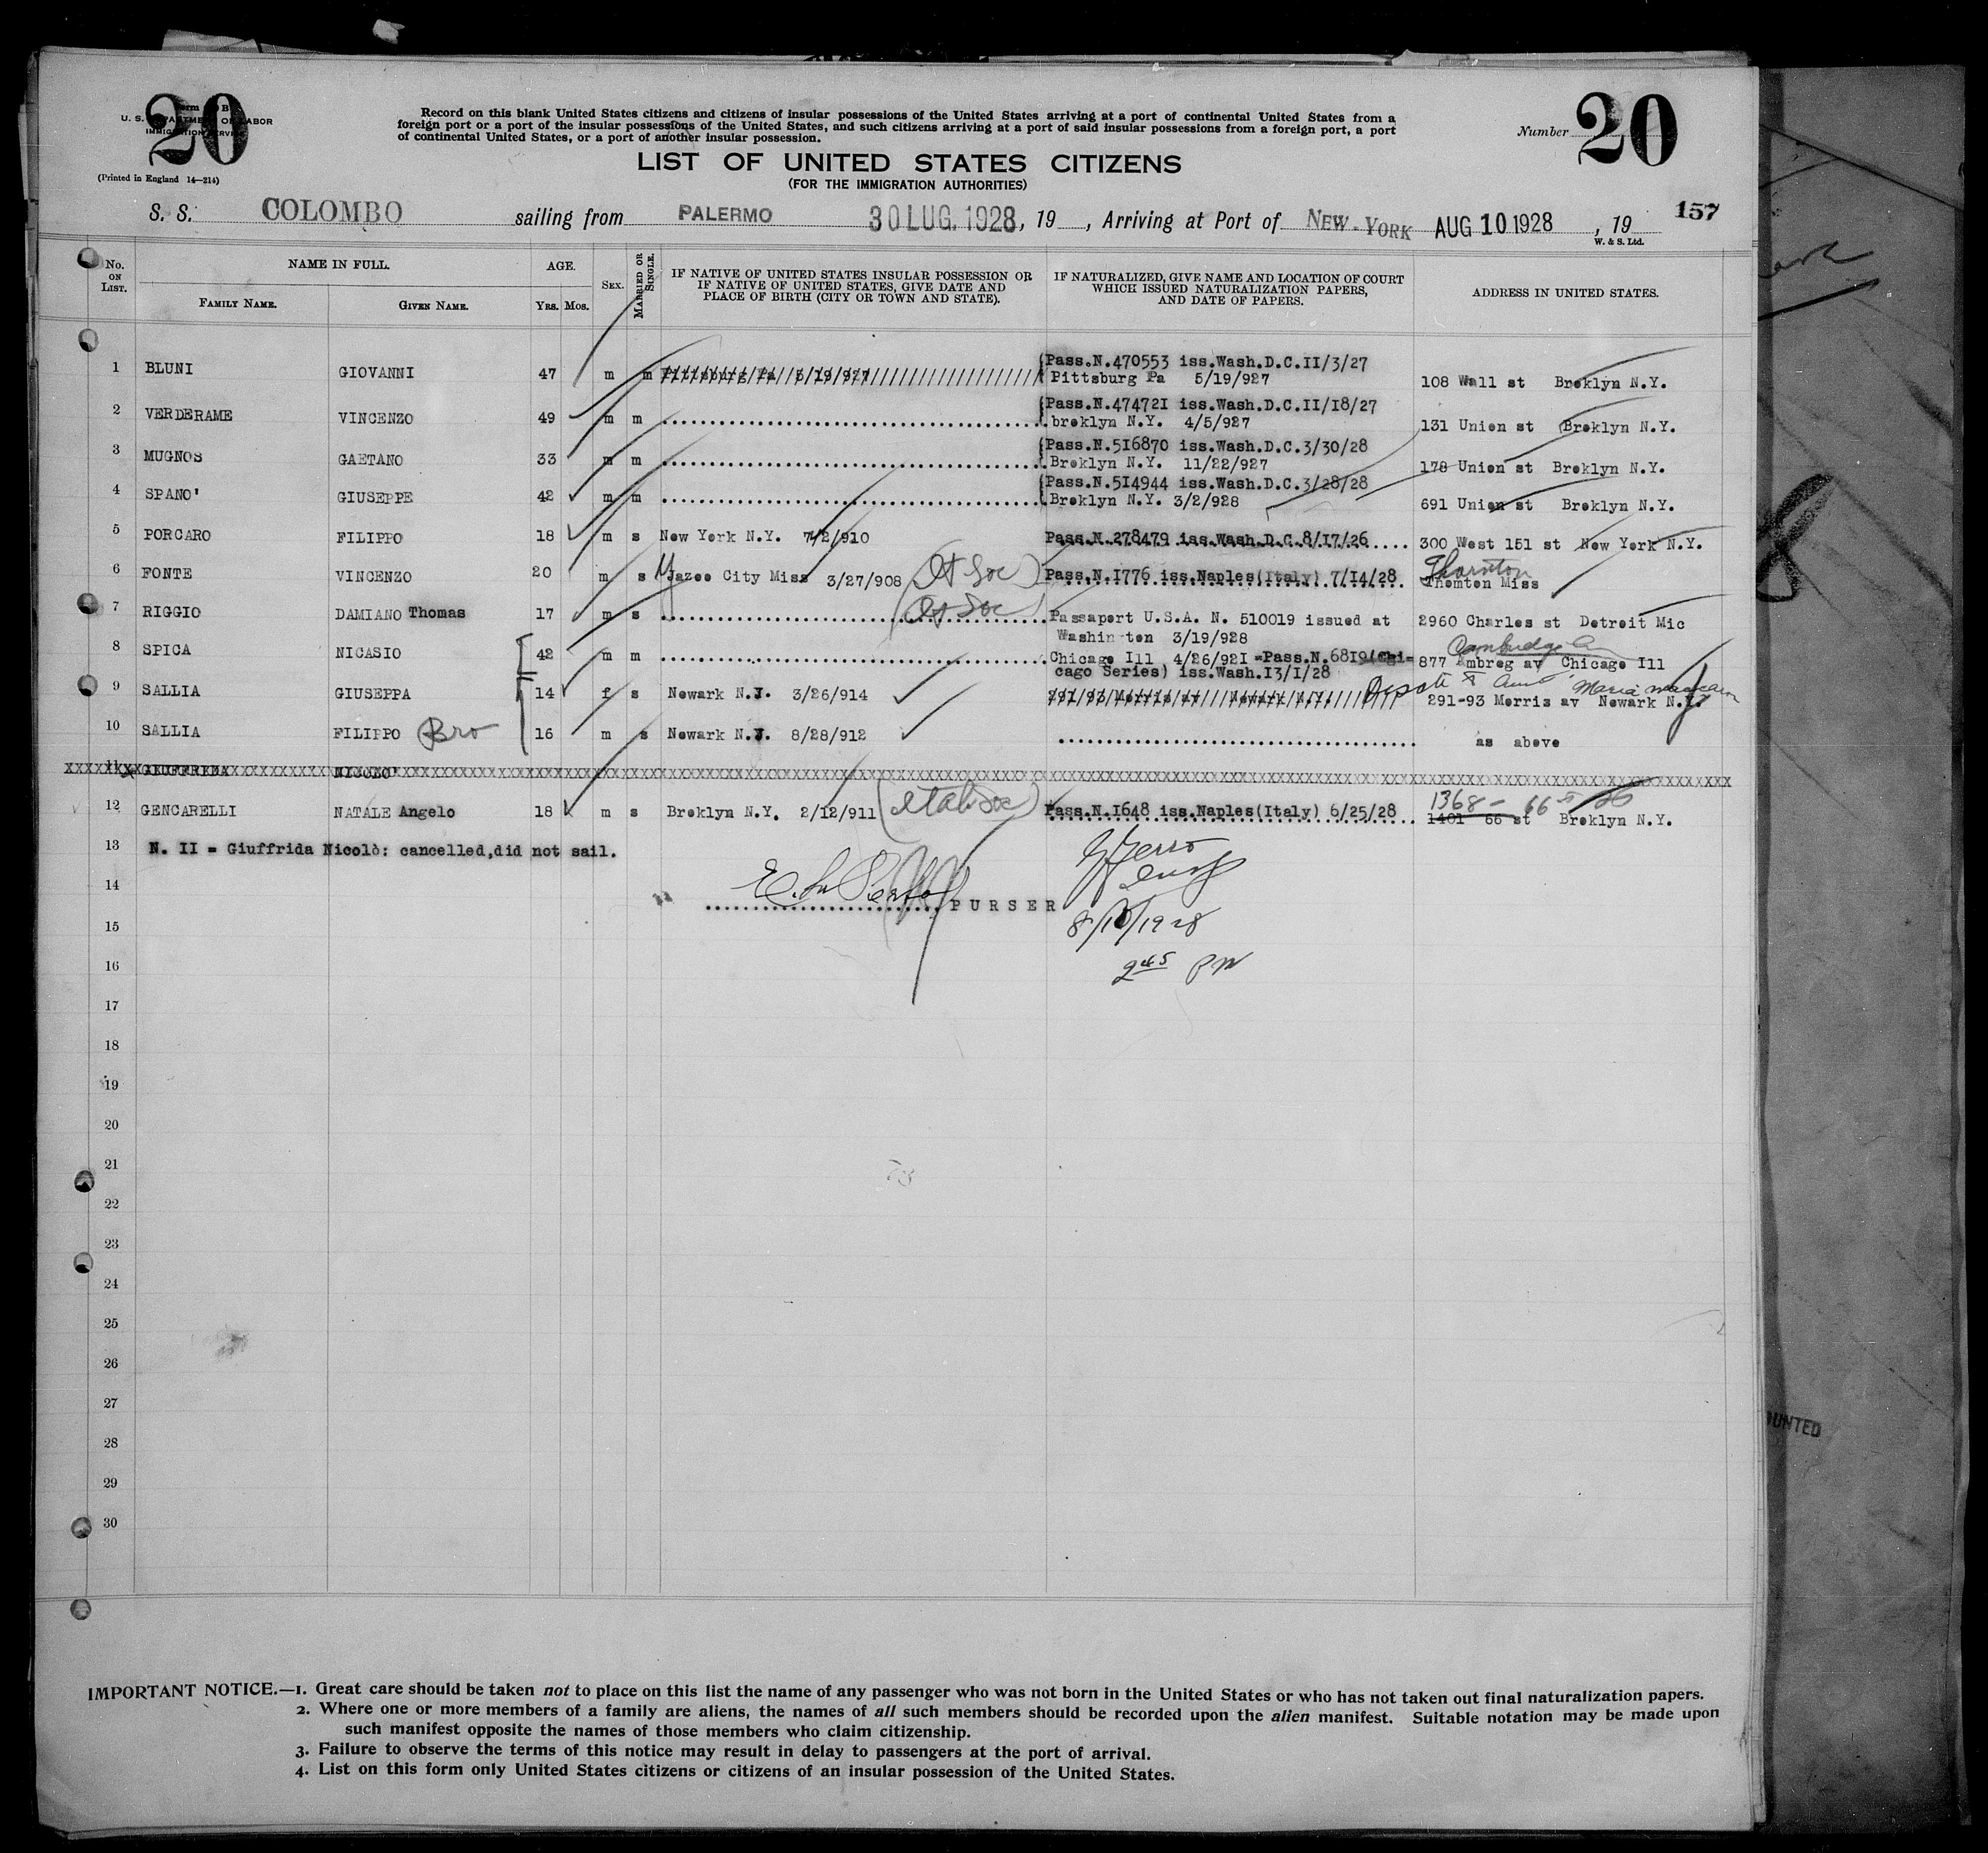 20
Form B
U. S. DEPARTMENT OF LABOR
IMMIGRATION SERVICE
(Printed in England 14—214)
Record on this blank United States citizens and citizens of insular possessions of the United States arriving at a port of continental United States from a
foreign port or a port of the insular possessions of the United States, and such citizens arriving at a port of said insular possessions from a foreign port, a port
of continental United States, or a port of another insular possession.
Number 20
LIST OF UNITED STATES CITIZENS
(FOR THE IMMIGRATION AUTHORITIES)
S. S. COLOMBO sailing from PALERMO 30 LUG. 1928, 19 , Arriving at Port of NEW-YORK AUG 10 1928 , 19
157
W. & S. Ltd.
No. ON LIST.
NAME IN FULL.
FAMILY NAME. GIVEN NAME.
AGE.
YRS. MOS.
SEX.
MARRIED OR SINGLE.
IF NATIVE OF UNITED STATES INSULAR POSSESSION OR
IF NATIVE OF UNITED STATES, GIVE DATE AND
PLACE OF BIRTH (CITY OR TOWN AND STATE).
IF NATURALIZED, GIVE NAME AND LOCATION OF COURT
WHICH ISSUED NATURALIZATION PAPERS,
AND DATE OF PAPERS.
ADDRESS IN UNITED STATES.
1 BLUNI GIOVANNI 47 m m Pittsburg Pa 5/19/927 (Pass.N.470553 iss.Wash.D.C.II/3/27
Pittsburg Pa 5/19/927 108 Wall st Breklyn N.Y.
2 VERDERAME VINCENZO 49 m m (Pass.N.47472I iss.Wash.D.C.II/I8/27
breklyn N.Y. 4/5/927 131 Union st Breklyn N.Y.
3 MUGNOS GAETANO 33 m m (Pass.N.5I6870 iss.Wash.D.C.3/30/28
Breklyn N.Y. 11/22/927 178 Union st Breklyn N.Y.
4 SPANO' GIUSEPPE 42 m m (Pass.N.5I4944 iss.Wash.D.C.3/28/28
Breklyn N.Y. 3/2/928 691 Union st Breklyn N.Y.
5 PORCARO FILIPPO 18 m s New York N.Y. 7/2/910 Pass.N.278479 iss.Wash.D.C.8/I7/26 300 West 151 st New York N.Y.
6 FONTE VINCENZO 20 m s Jazoo City Miss 3/27/908 Pass.N.I776 iss.Naples(Italy) 7/I4/28 Thornton
Thomton Miss
7 RIGGIO DAMIANO Thomas 17 m s Passaport U.S.A. N. 510019 issued at 2960 Charles st Detreit Mic
Washington 3/19/928
8 SPICA NICASIO 42 m m Chicago Ill 4/26/92I =Pass.N.68I9(Chi= 877 Ambreg av Chicago Ill
cago Series) iss.Wash.I3/I/28
9 SALLIA GIUSEPPA 14 f s Newark N.J. 3/26/914 291-93 Morris av Newark N.Y.
10 SALLIA FILIPPO Bro 16 m s Newark N.J. 8/28/912 as above
11 GIUFFRIDA NICOLO'
12 GENCARELLI NATALE Angelo 18 m s Breklyn N.Y. 2/12/911 Pass.N.I648 iss.Naples(Italy) 6/25/28 1368 - 66
1401 66 st Breklyn N.Y.
13 N. II = Giuffrida Nicolò: cancelled,did not sail.
14 PURSER
15 8/10/1928
16 2 45 PM
17
18
19
20
21
22
23
24
25
26
27
28
29
30
UNTED
IMPORTANT NOTICE.—1. Great care should be taken not to place on this list the name of any passenger who was not born in the United States or who has not taken out final naturalization papers.
2. Where one or more members of a family are aliens, the names of all such members should be recorded upon the alien manifest. Suitable notation may be made upon
such manifest opposite the names of those members who claim citizenship.
3. Failure to observe the terms of this notice may result in delay to passengers at the port of arrival.
4. List on this form only United States citizens or citizens of an insular possession of the United States.